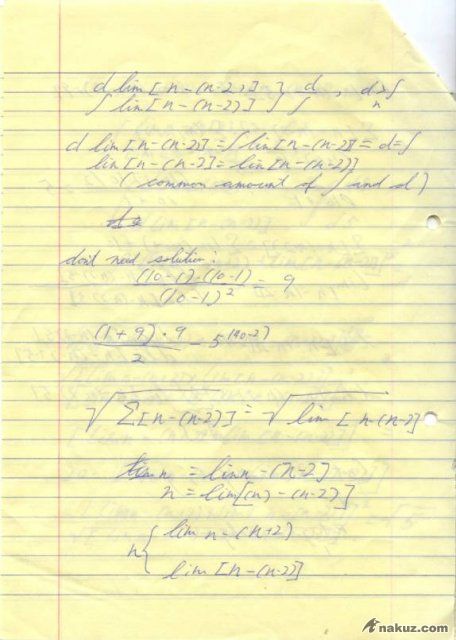 d lim [n-(n-2)] } d , d>∫
∫ lim [n-(n-2)] ∫ ∫ n
d lim [n-(n-2)] = ∫ lim [n-(n-2] = d=∫
lim [n-(n-2] = lim [n-(n-2)]
( common amount of ∫ and d )
don't need solution:
(10-1)-(10-1) = 9
(10-1)²
(1+9)·9 = 5^(10-2)
2
√Σ[n-(n-2)] = √lim [n-(n-2]
n = lim n-(n-2]
n = lim[(n)-(n-2)]
n { lim n-(n+2)
lim [n-(n-2)]
nakuz.com